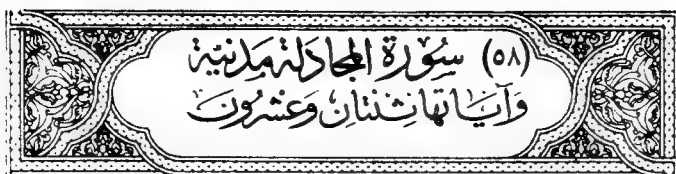 (٥٨) سُوْرَة المجَادَلة مَدنيَّة
وَآيَاتهَا ثِنْتَانِ وَعشْرُونَ